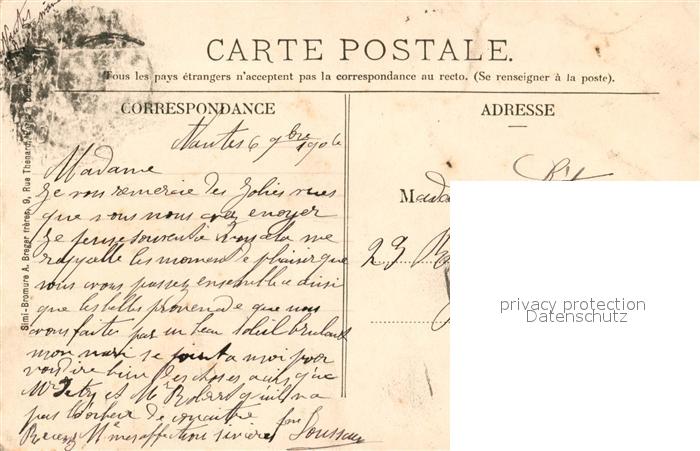 CARTE POSTALE.
Tous les pays étrangers n'acceptent pas la correspondance au recto. (Se renseigner à la poste).
CORRESPONDANCE
ADRESSE
Nantes 6 9bre 1906
Madame
Je vous remercie des jolies vues
que vous nous avez envoyer
Je pense souvent à vous cela me
rappelle les moments de plaisir que
nous avons passez ensemble ainsi
que les belles promenade que nous
avons faites par un beau soleil brulant
mon mari se joint a moi pour
vous dire bien des choses ainsi que
Mr et Mr Robert qu'il n'a
pas l'honneur de connaitre
Recevez Me mes affection sincères
Mada
23
Simi-Bromure A. Breger frères, 9, Rue Thénard,
privacy protection
Datenschutz